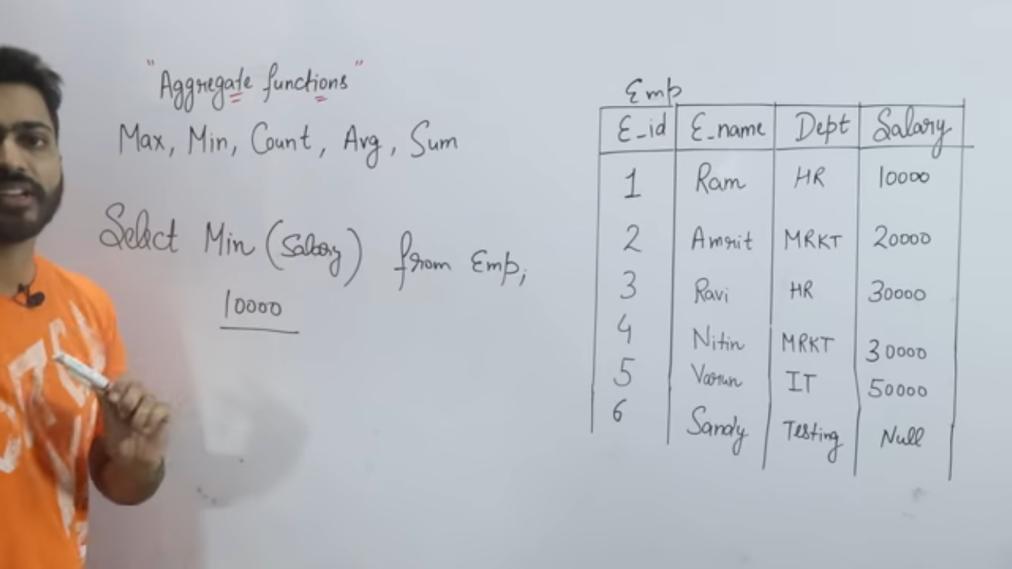 "Aggregate functions"
Max, Min, Count, Avg, Sum
Select Min (Salary) from Emp;
10000
Emp
E_id E_name Dept Salary
1 Ram HR 10000
2 Amrit MRKT 20000
3 Ravi HR 30000
4 Nitin MRKT 30000
5 Varun IT 50000
6 Sandy Testing Null